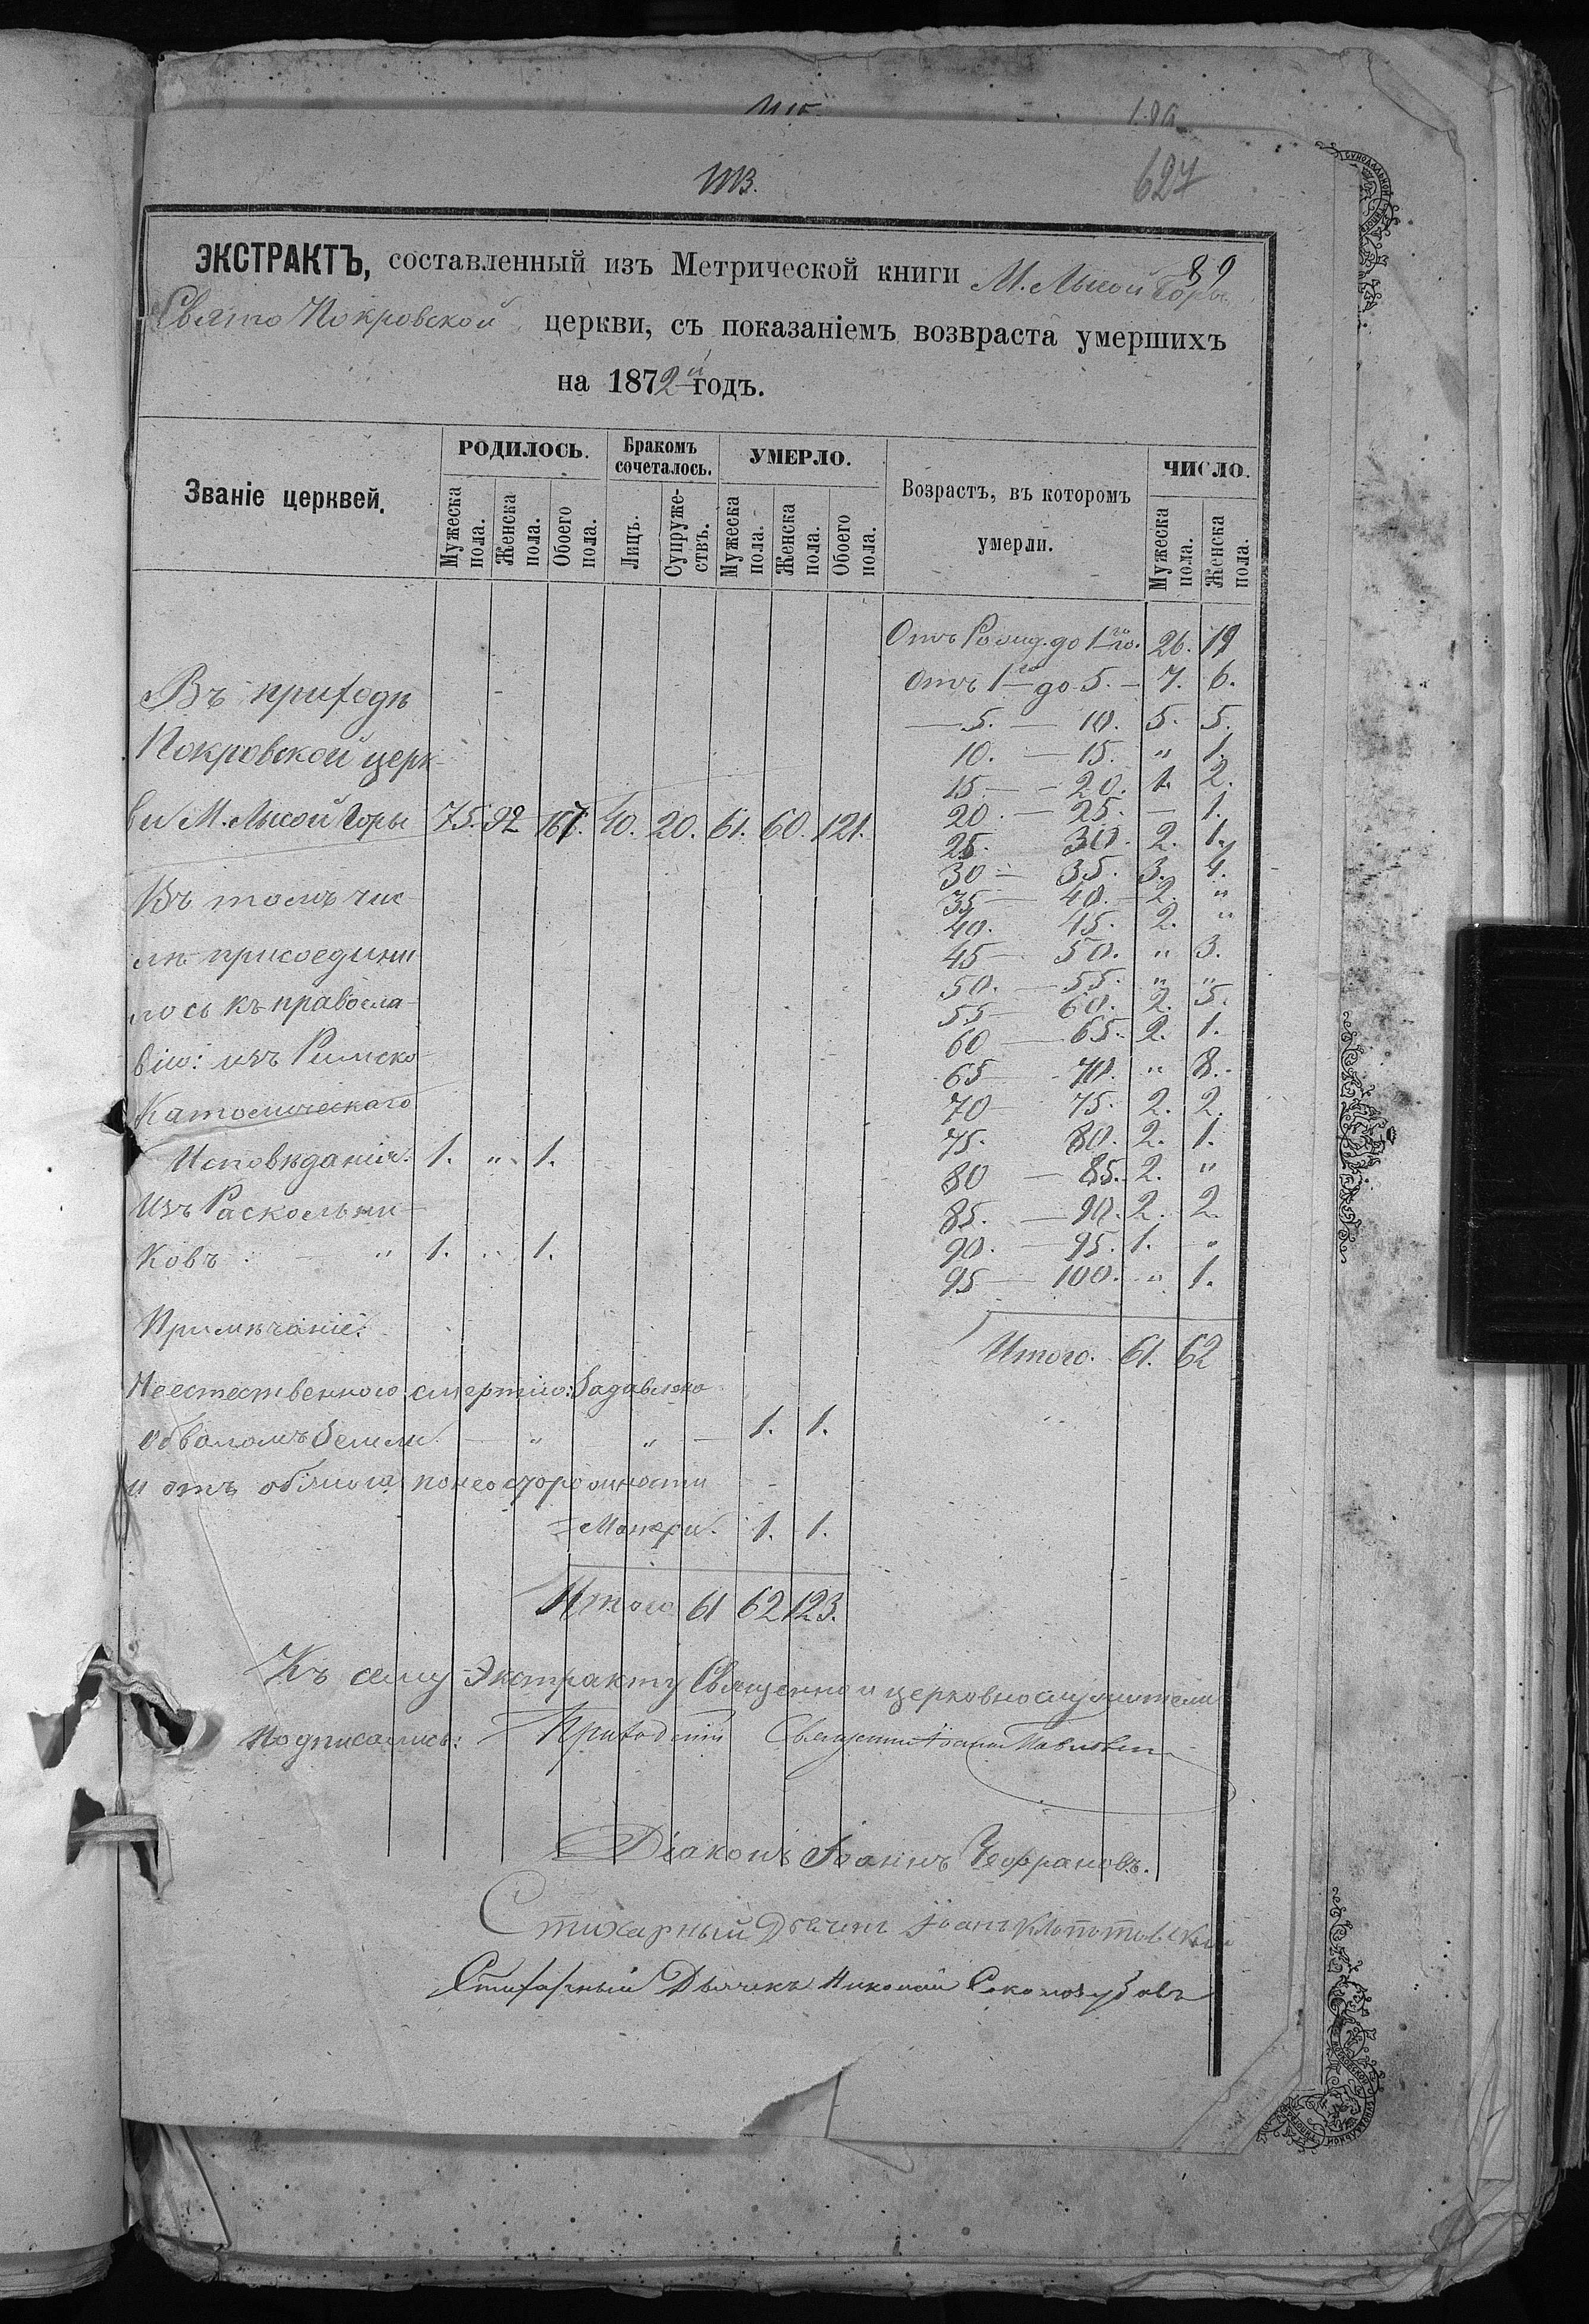 627
89
ЭКСТРАКТЪ, составленный изъ Метрической книги М. Лысой Горы
Свято Покровской церкви, съ показаніемъ возвраста умершихъ
на 1872й годъ.
Званіе церквей.
РОДИЛОСЬ.
Мужеска пола.
Женска пола.
Обоего пола.
Бракомъ сочеталось.
Лицъ.
Супружествъ.
УМЕРЛО.
Мужеска пола.
Женска пола.
Обоего пола.
Возрастъ, въ которомъ умерли.
ЧИСЛО.
Мужеска пола.
Женска пола.
Въ приходѣ
Покровской церк-
ви М. Лысой Горы 75. 92 167. 40. 20. 61. 60. 121.
Въ томъ чис
лѣ присоедини
лось къ правосла-
вію: изъ Римско-
Католическаго
Исповѣданія. 1. „ 1.
Изъ Раскольни-
ковъ „ 1. „ 1.
Примѣчаніе:
Неестественною смертію: Задавлено
обваломъ Земли — „ — „ — 1. 1.
и отъ обжога по неосторожности
Матери. 1. 1.
Итого 61 62 123.
Отъ Рожд. до 1го го. 26. 19
Отъ 1го до 5. — 7. 6.
— 5. — 10. 5. 5.
10. — 15. „ 1.
15 — 20. 1. 2.
20. — 25. — 1.
25. 30. 2. 1.
30 — 35. 3. 4.
35 — 40. — 2. „
40. 45. 2. „
45 — 50. „ 3.
50. — 55. „ „
55 — 60. 2. 5.
60 — 65. 2. 1.
65 — 70. „ 8.
70 — 75. 2. 2.
75. 80. 2. 1.
80 — 85. 2. „
85. — 90. 2. 2.
90. — 95. 1. „
95 — 100. „ 1.
Итого. 61. 62
Къ сему Экстракту Священно и церковнослужители
подписались: Приходскій Священникъ Іоаннъ
Діаконъ Іоаннъ
Стихарный Дьячекъ Іоанъ Клопотовскій
Стихарный Дьячекъ Николай